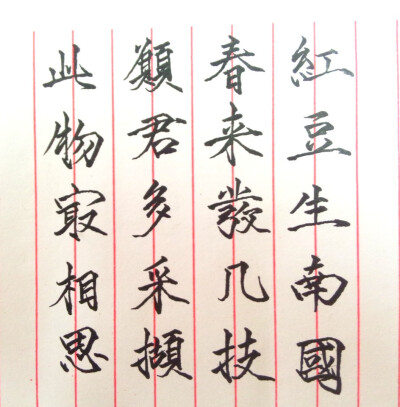 紅豆生南國
春来發几技
願君多采擷
此物㝡相思